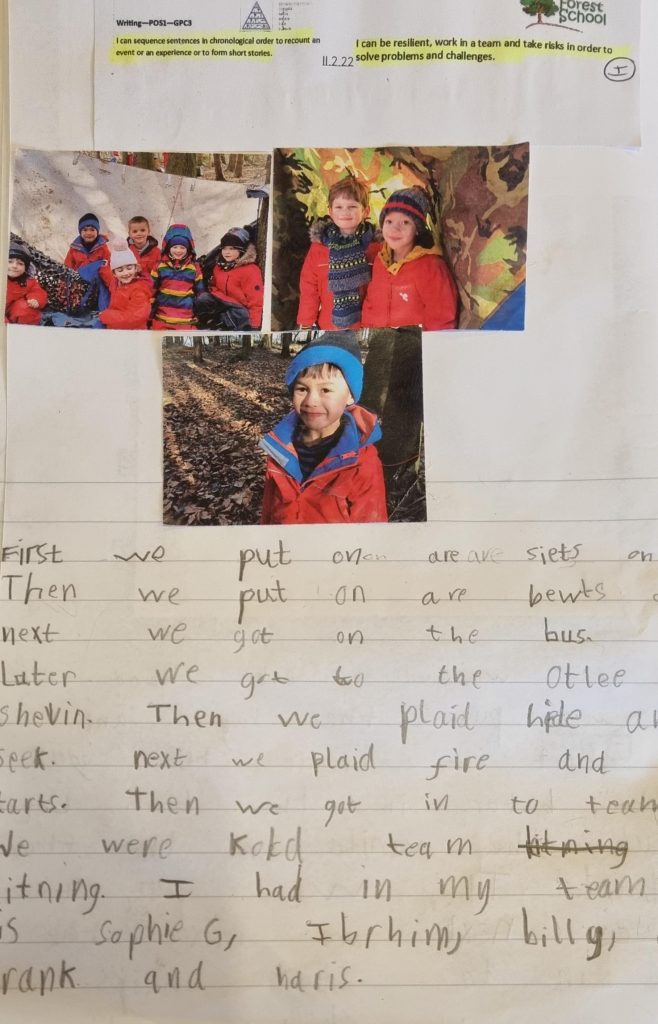 Writing—POS1—GPC3
I can sequence sentences in chronological order to recount an
event or an experience or to form short stories.
Forest
School
11.2.22
I can be resilient, work in a team and take risks in order to
solve problems and challenges.
I
First we put on on are are siets on
Then we put on are bewts
next we got on the bus.
Later we got to the Otlee
shevin. Then we plaid hide an
seek. next we plaid fire and
tarts. Then we got in to team
We were kold team litning
litning. I had in my team
is Sophie G, Ibrhim, billy,
frank and haris.